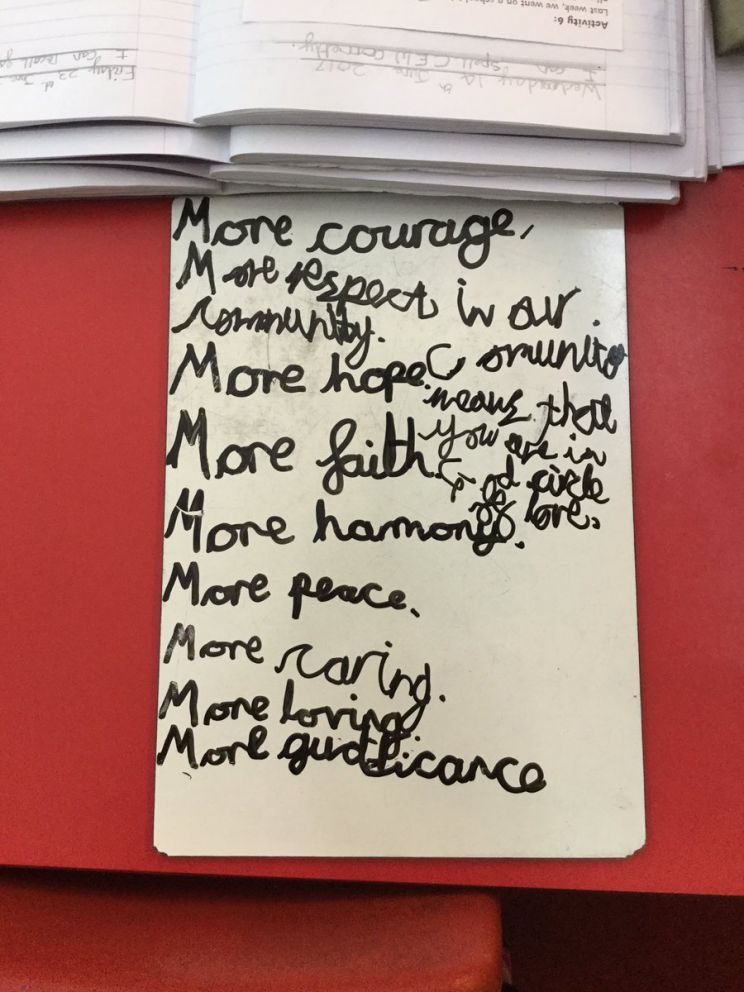 Activity 6:
Last week, we went on a school
Wednesday 14th June 2017
I can spell C.E.W correctly.
Friday 23rd June
I can recall
More courage,
More respect in our
community.
More hope.
More faith.
Comunity
means that
you are in
God circle
of love.
More harmony.
More peace.
More caring.
More loving
More